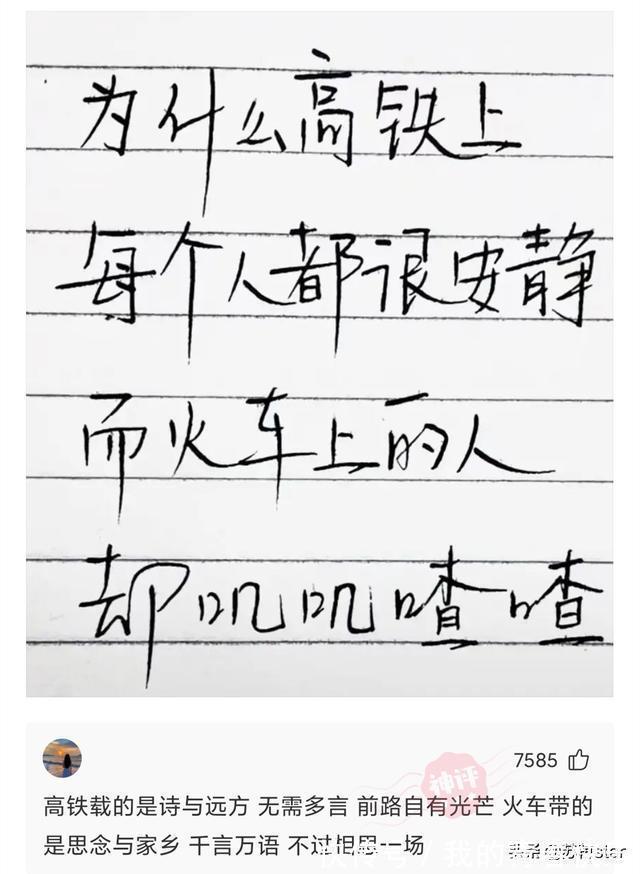 为什么高铁上
每个人都很安静
而火车上的人
却叽叽喳喳
7585
神评
高铁载的是诗与远方 无需多言 前路自有光芒 火车带的
是思念与家乡 千言万语 不过相思一场